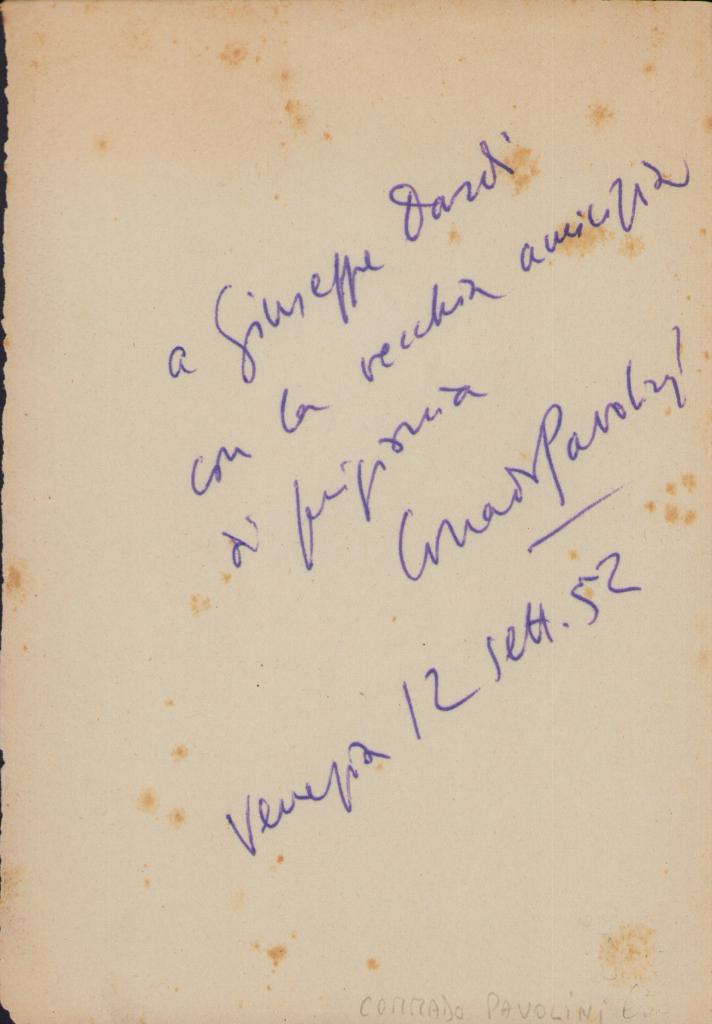 a Giuseppe Dardi
con la vecchia amicizia
di prigionia
Corrado Pavolini
Venezia 12 sett. 52
CORRADO PAVOLINI